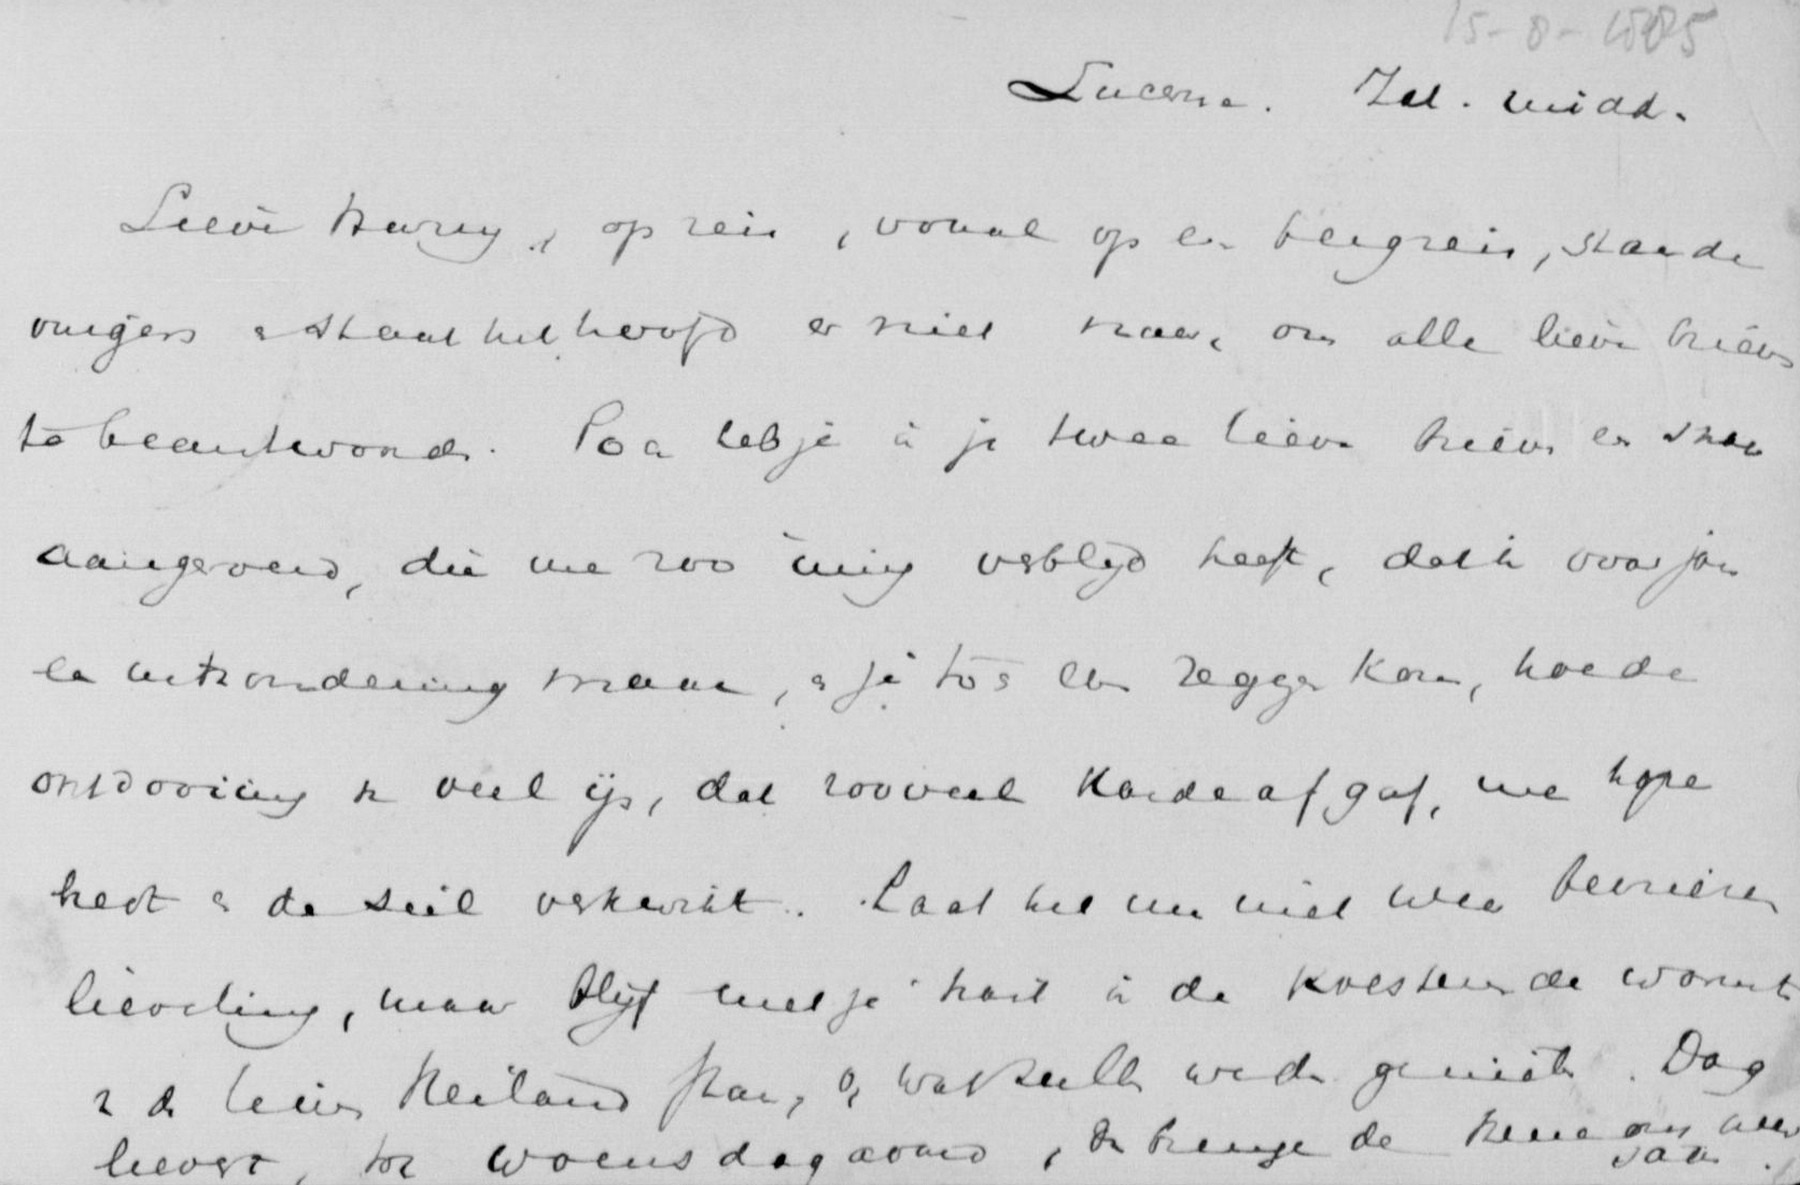 15-8-1885
Lucerne. Zat. midd.
Lieve Harry, op reis, vooral op en bergreis, staande
vingers staat het hoofd er niet naar, om alle lieve brieven
te beantwoorden. Pa heb je in je twee lieve brieven en
aangeroerd, die me zoo innig verblijd heeft, dat ik voor jou
en uitzondering maak, je toe en zeggen kom, hoe de
ontdooiing v veel ijs, dat zooveel koude afgaf, me
hart de ziel verkwikt. Laat het nu niet weer bevriezen
lieveling, maar blijf met je hart in de koesterende warmte
v d lieven Heiland staan, wat zullen we dan genieten. Dag
lieverd, tot Woensdagavond, brenge de Heere ons weer
saam.